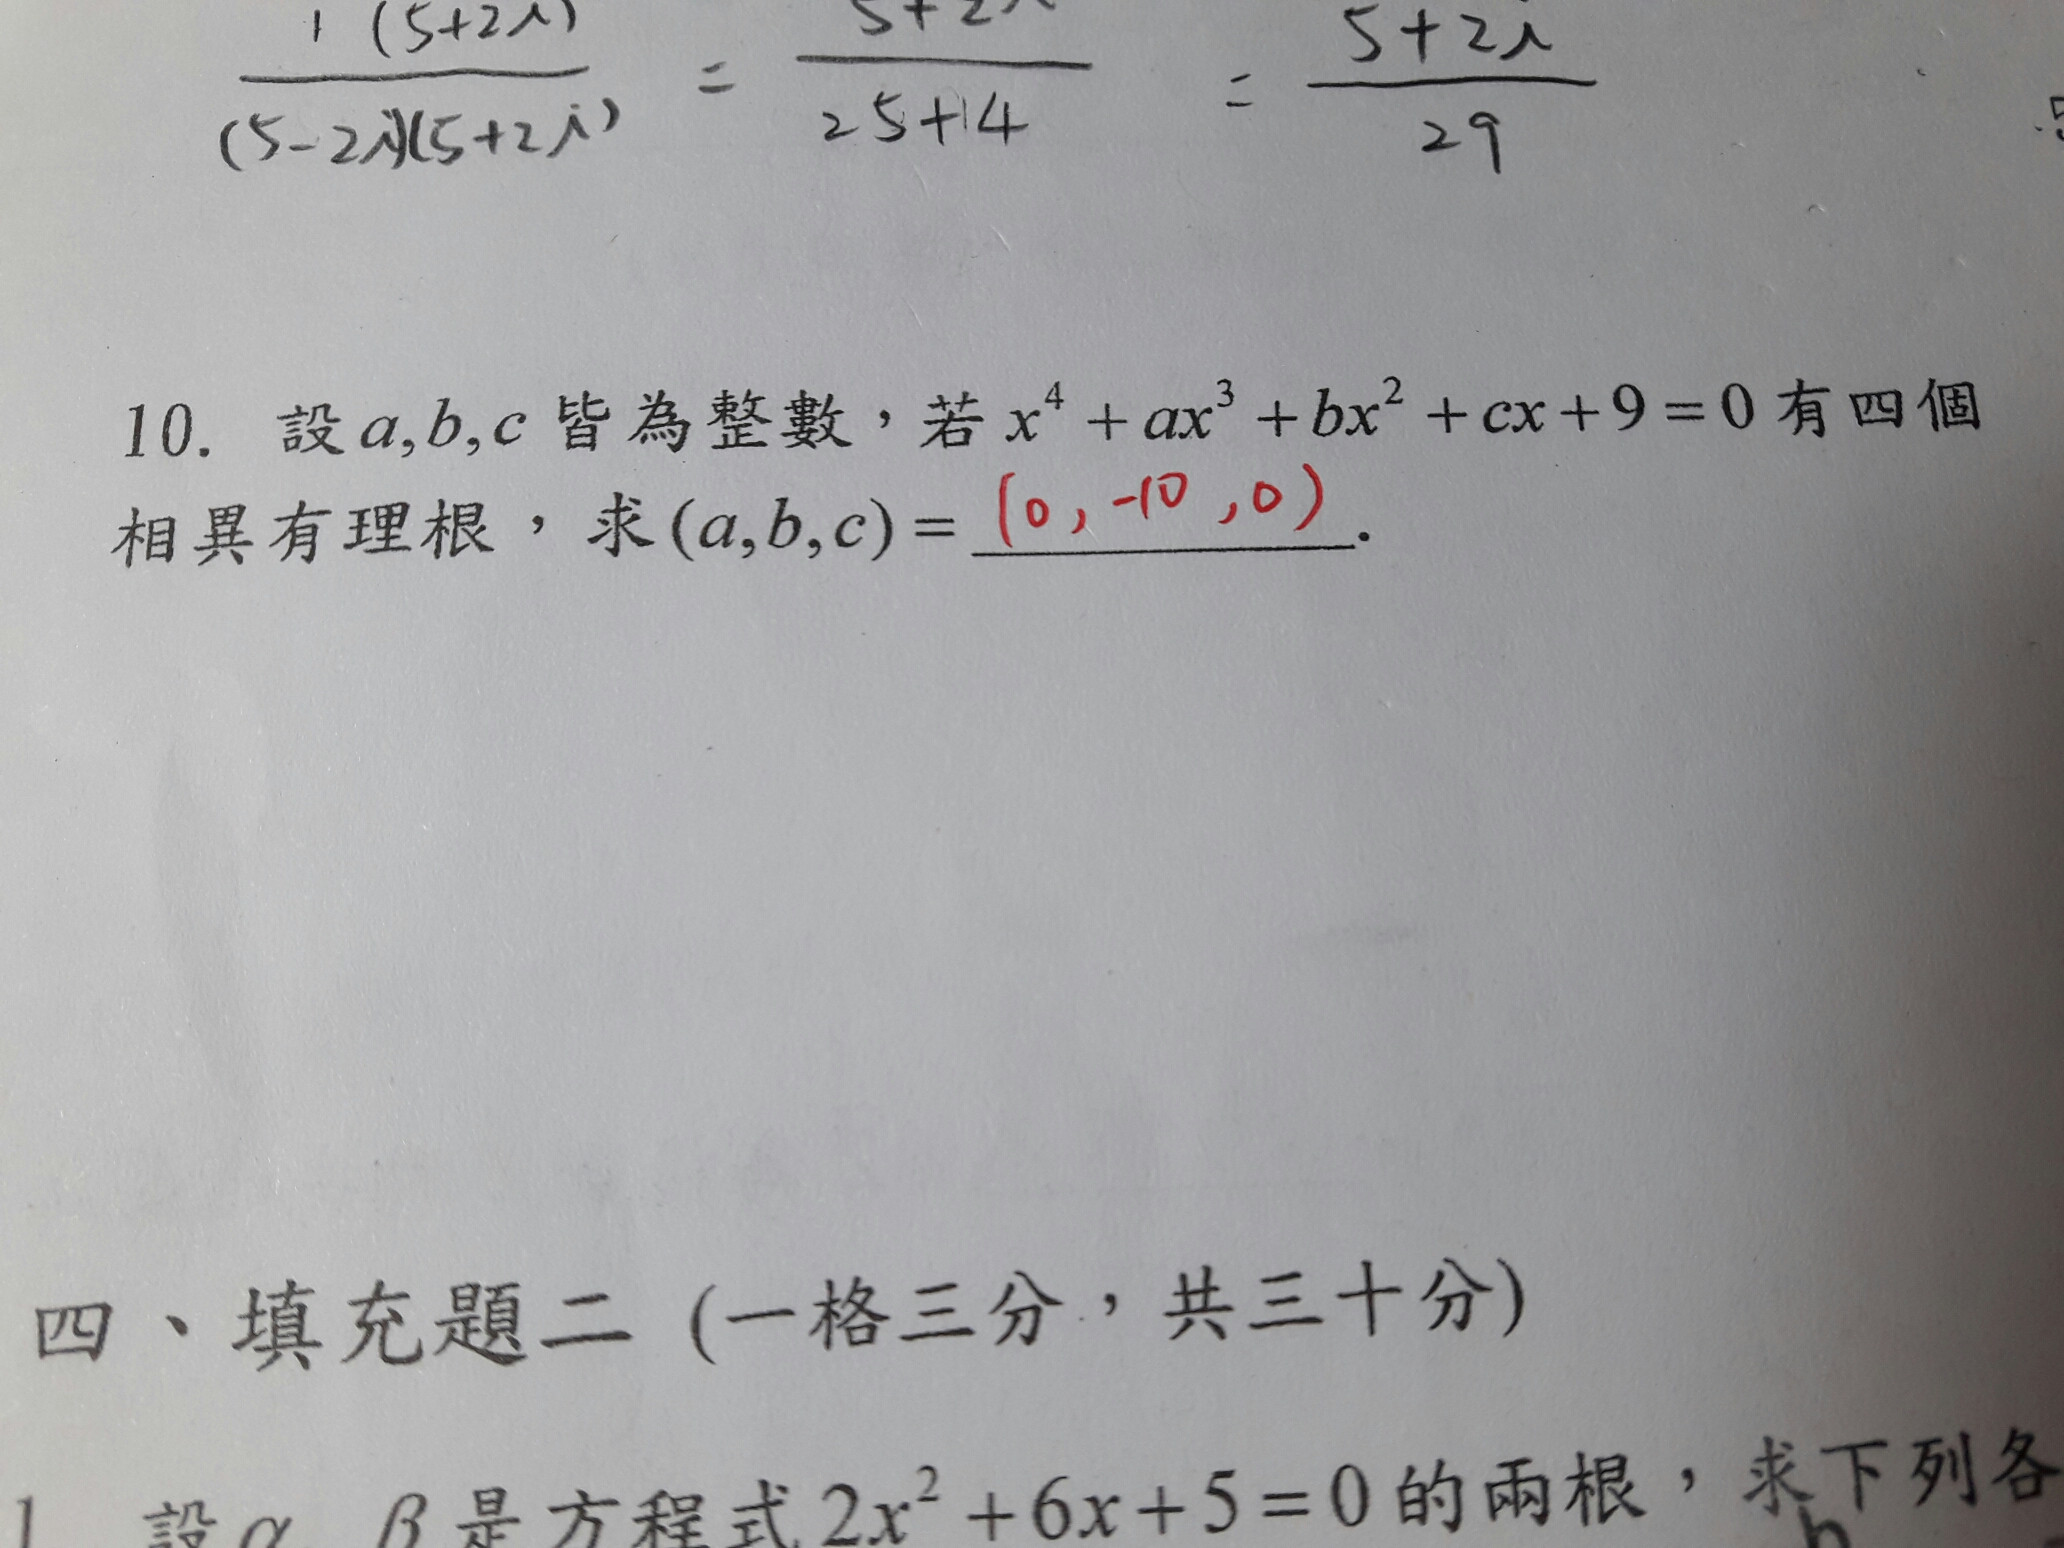 1 (5+2i) / (5-2i)(5+2i) = 5+2i / 25+4 = 5+2i / 29
10. 設a,b,c 皆為整數,若 x⁴ + ax³ + bx² + cx + 9 = 0 有四個
相異有理根,求(a,b,c) = (0, -10, 0).
四、填充題二 (一格三分,共三十分)
1 設α、β是方程式 2x² + 6x + 5 = 0 的兩根,求下列各